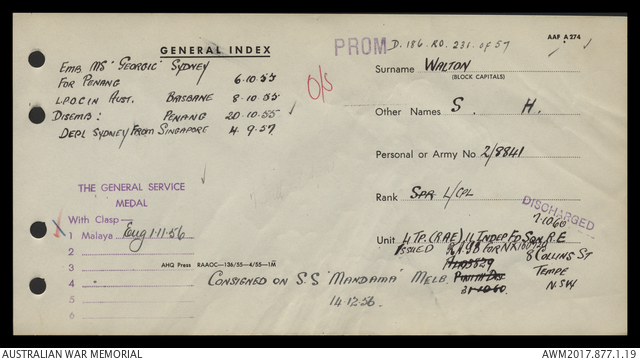 GENERAL INDEX
PROM D.186. RO. 231. of 57
AAF A 274
EMB MS "GEORGIC" SYDNEY
FOR PENANG 6.10.55
L.P.O.C IN AUST. BRISBANE 8.10.55
DISEMB: PENANG 20.10.55
DEPL SYDNEY FROM SINGAPORE 4.9.57
O/S
Surname WALTON
(BLOCK CAPITALS)
Other Names S. H.
Personal or Army No. 2/8841
Rank SPR L/CPL
DISCHARGED
7.10.60
Unit 4 TP. (RAE) 11 INDEP FD SQN R.E
ISSUED
8 COLLINS ST
TEMPE
N.S.W
31.10.60.
THE GENERAL SERVICE
MEDAL
With Clasp—
1 Malaya Eng 1.11.56
2
3
4
5
6
AHQ Press RAAOC—136/55—4/55—1M
CONSIGNED ON S.S "MANDAMA" MELB.
14.12.56.
AUSTRALIAN WAR MEMORIAL
AWM2017.877.1.19